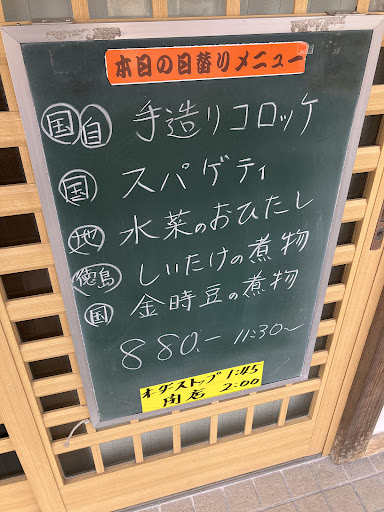 本日の日替りメニュー
国 自 手造りコロッケ
国 スパゲティ
地 水菜のおひたし
徳島 しいたけの煮物
国 金時豆の煮物
880.- 11:30〜
オーダーストップ 1:45
閉店 2:00